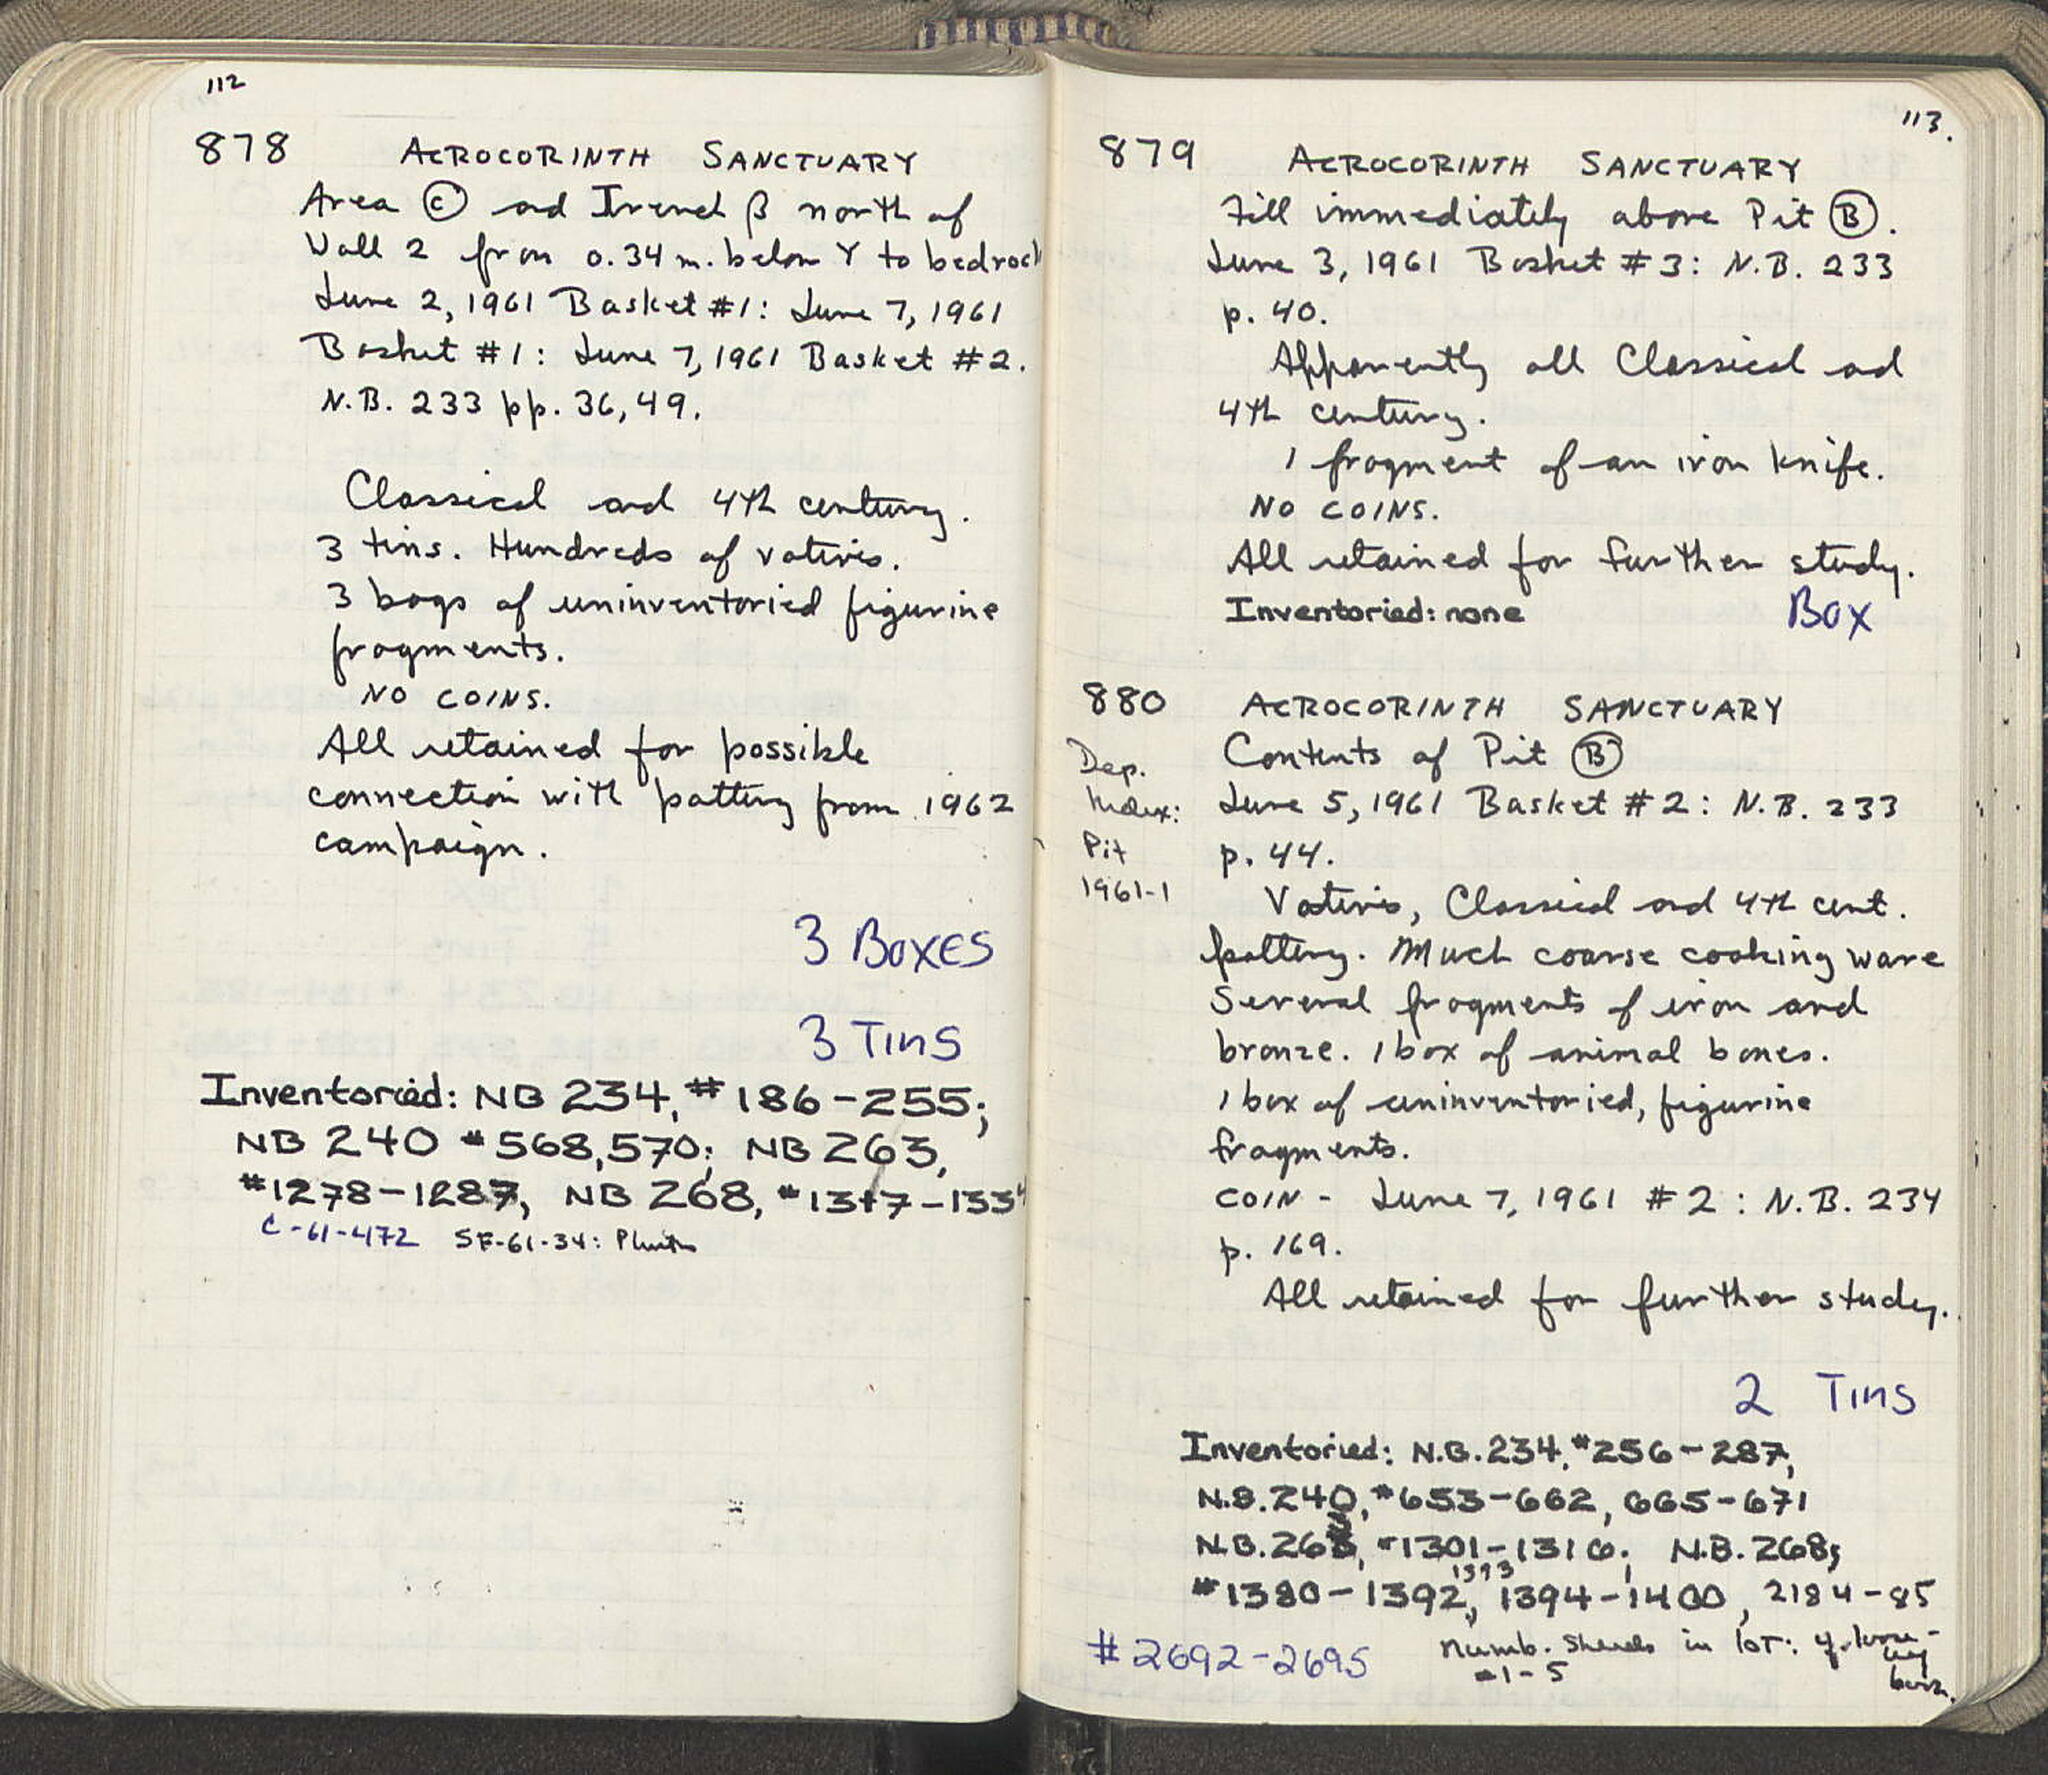 112
878 ACROCORINTH SANCTUARY
Area Ⓒ and Trench β north of
Wall 2 from 0.34 m. below Y to bedrock
June 2, 1961 Basket #1: June 7, 1961
Basket #1: June 7, 1961 Basket #2.
N.B. 233 pp. 36, 49.
Classical and 4th century.
3 tins. Hundreds of votives.
3 bags of uninventoried figurine
fragments.
NO COINS.
All retained for possible
connection with pottery from 1962
campaign.
3 Boxes
3 Tins
Inventoried: NB 234, #186-255;
NB 240 #568,570; NB 263,
#1278-1287, NB 268, #1317-1334
C-61-472 SF-61-34:
113.
879 ACROCORINTH SANCTUARY
Fill immediately above Pit Ⓑ.
June 3, 1961 Basket #3: N.B. 233
p. 40.
Apparently all Classical and
4th century.
1 fragment of an iron knife.
NO COINS.
All retained for further study.
Inventoried: none Box
880 ACROCORINTH SANCTUARY
Dep.
Index:
Pit
1961-1
Contents of Pit Ⓑ
June 5, 1961 Basket #2: N.B. 233
p. 44.
Votives, Classical and 4th cent.
pottery. Much coarse cooking ware
Several fragments of iron and
bronze. 1 box of animal bones.
1 box of uninventoried, figurine
fragments.
COIN - June 7, 1961 #2: N.B. 234
p. 169.
All retained for further study.
2 Tins
Inventoried: N.B. 234, #256-287,
N.B. 240, #653-662, 665-671
N.B. 263, #1301-1316; N.B. 268;
1393
#1380-1392, 1394-1400, 2184-85
#2692-2695 Numb. Sherds in lot:
#1-5